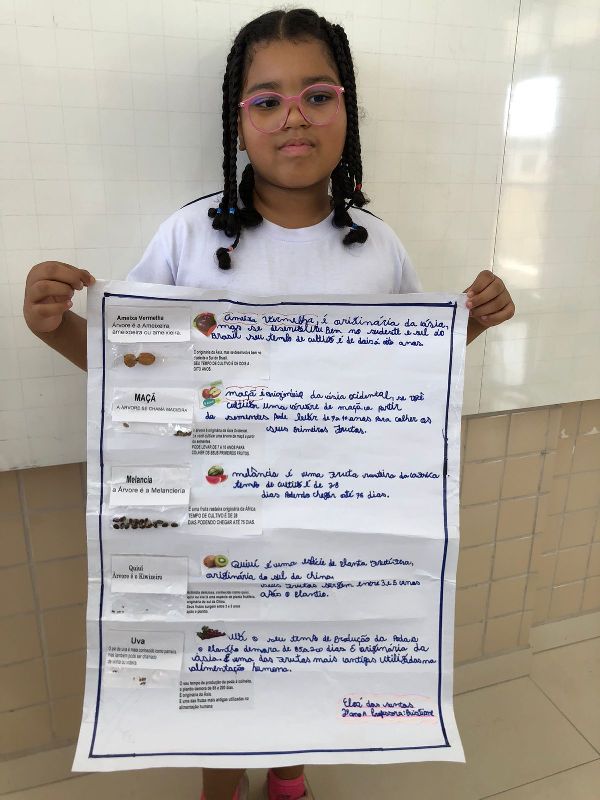 Ameixa Vermelha
Árvore é a Ameixeira
ameixoeira ou ameixieira.
Ameixa Vermelha, é originária da Ásia,
mas se desenvolve bem no sudeste e sul do
Brasil seu tempo de cultivo é de dois a oito anos.
É originária da Ásia, mas se desenvolve bem no
sudeste e Sul do Brasil.
SEU TEMPO DE CULTIVO É DE DOIS A
OITO ANOS.
MAÇÃ
A ÁRVORE SE CHAMA MACIEIRA
maçã é originária da Ásia ocidental, se você
cultivar uma árvore de maçã a partir
da sementes pode levar de 7 a 10 anos para colher os
seus primeiros frutos.
A árvore é originária da Ásia Ocidental.
Se você cultivar uma árvore de maçã a partir
da semente
PODE LEVAR DE 7 A 10 ANOS PARA
COLHER OS SEUS PRIMEIROS FRUTOS.
Melancia
a Árvore é a Melancieria
melância é uma fruta rasteira da
tempo de cultivo é de 28
dias podendo chegar até 75 dias.
É uma fruta rasteira originária da África
TEMPO DE CULTIVO É DE 28
DIAS PODENDO CHEGAR ATÉ 75 DIAS.
Quiuí
Árvore é o Kiwizeiro
Quiuí é uma espécie de planta frutífera,
originária do sul da china.
seus frutos surgem entre 3 e 5 anos
após o plantio.
deliciosa, conhecida como quiuí,
quivi ou kiwi é uma espécie de planta frutífera,
originária do sul da China.
Seus frutos surgem entre 3 e 5 anos
Uva
O pé de uva é mais conhecido como parreira,
mas também pode ser chamado
de vinha ou videira
Uva o seu tempo de produção da poda a
o plantio demora de 85 a 200 dias é originária da
Ásia. É uma das frutas mais antigas utilizadas na
alimentação humana.
O seu tempo de produção da poda à colheita,
o plantio demora de 85 a 200 dias.
É originária da Ásia.
É uma das frutas mais antigas utilizadas na
alimentação humana
Eloá dos santos
Professora: Cristiane